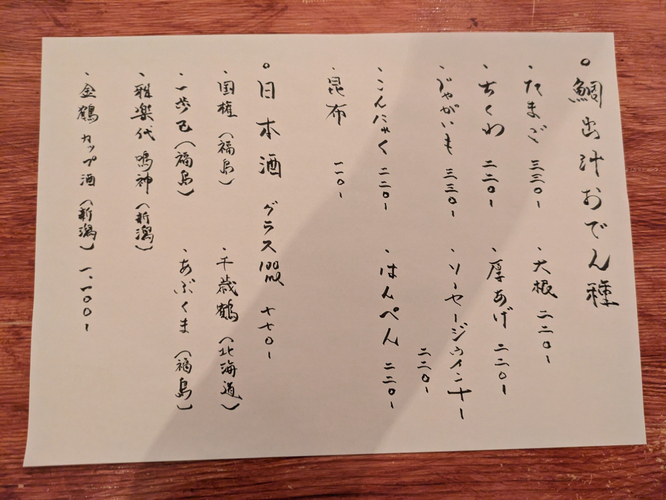 。鯛出汁おでん種
・たまご 三三〇-
・大根 二二〇-
・ちくわ 二二〇-
・厚あげ 二二〇-
・じゃがいも 三三〇-
・ソーセージウインナー 二二〇-
・こんにゃく 二二〇-
・はんぺん 二二〇-
・昆布 一一〇-
。日本酒 グラス100ml 七七〇-
・国権(福島)
・千歳鶴(北海道)
・一歩己(福島)
・あぶくま(福島)
・雅楽代 鳴神(新潟)
・金鶴カップ酒(新潟) 一、一〇〇-